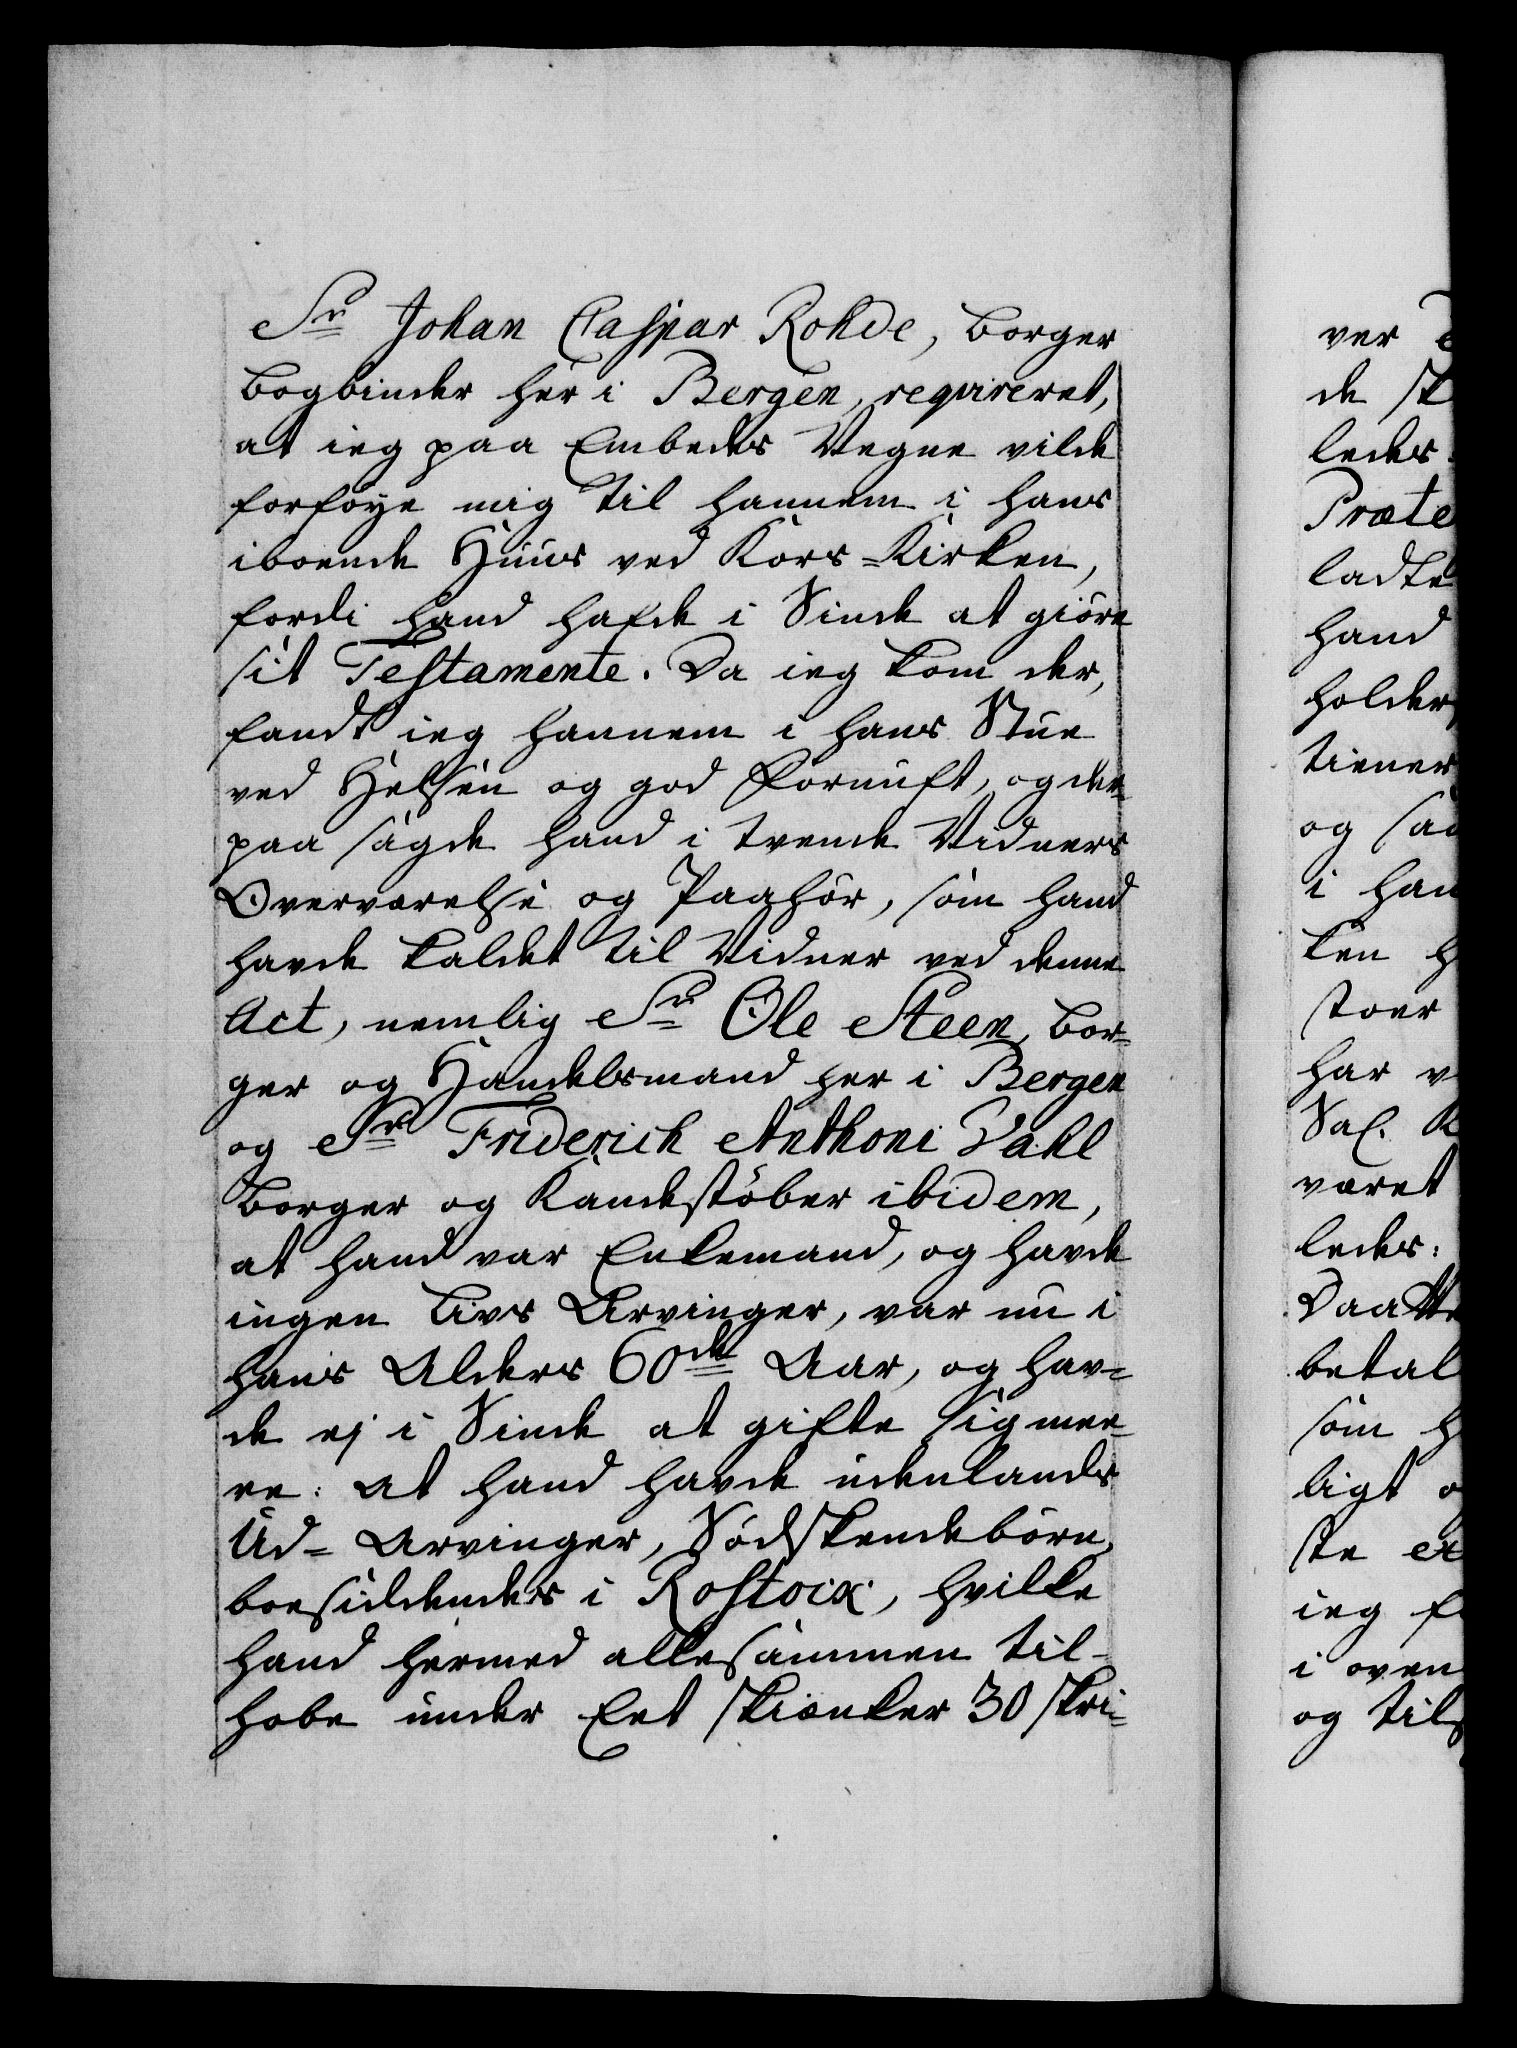 Sr Johan Caspar Rohde, borger
bogbinder her i Bergen, reqvireret,
at ieg paa Embeds Vegne vilde
forföye mig til hannem i hans
iboende Huus ved Kors=Kirken,
fordi hand hafde i Sinde at giöre
sit Testamente. Da ieg kom der,
fandt ieg hannem i hans Stue
ved Helsen og god Fornuft, og der=
paa sagde hand i tvende Vidners
Overværelse og Paahör, som hand
havde kaldet til Vidner ved denne
Act, nemlig Sr Ole Steen, bor=
ger og Handelsmand her i Bergen
og Sr Friderich Anthoni Dahl
borger og Kandestöber ibidem,
at hand var Enkemand, og havde
ingen Livs Arvinger, var nu i
hans Alders 60de Aar, og hav=
de ej i Sinde at gifte sig mee=
re: at hand havde udenlands
Ud= Arvinger, Södskendebörn,
boesiddendes i Rostock, hvilke
hand hermed allesammen til=
hobe under Eet skiænker 30 skri=
ver
de
leder
Præte
ladte
hand
holder
tiener
og saa
i han
ken
stoer
har v
Sal.
været
leder:
Daatte
betal
som h
ligt o
ste er
ieg f
i oven
og tils